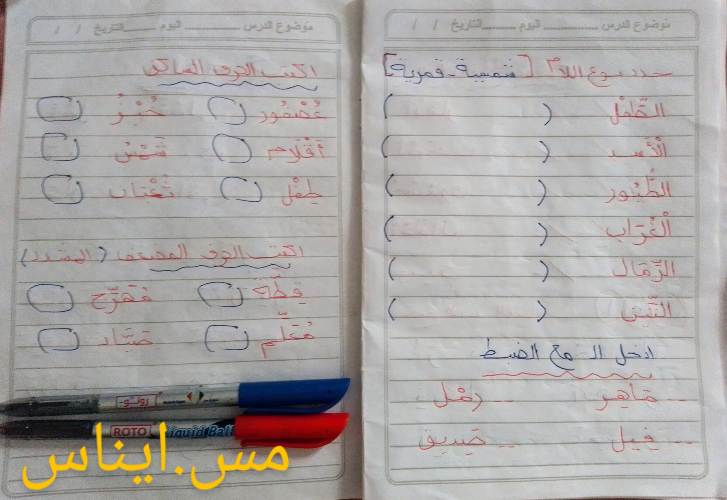 موضوع الدرس ______ اليوم ______ التاريخ / /
حدد نوع اللام [شمسية - قمرية]
الطِّفْل ( )
الْأَسد ( )
الطُّيُور ( )
الْغُرَاب ( )
الرِّمَال ( )
( )
ادخل الـ مع الضبط
... مَاهِر ... رَمْل
... فِيل ... صَدِيق
موضوع الدرس ______ اليوم ______ التاريخ / /
اكتب الحرف الساكن
عُصْفُور خُبْزُ
أَقْلَام شَمْسُ
طِفْل
اكتب الحرف المضعف (المشدد)
قِطَّة
مُعَلِّم صَيَّاد
ROTO Liquid Ball
مس.ايناس